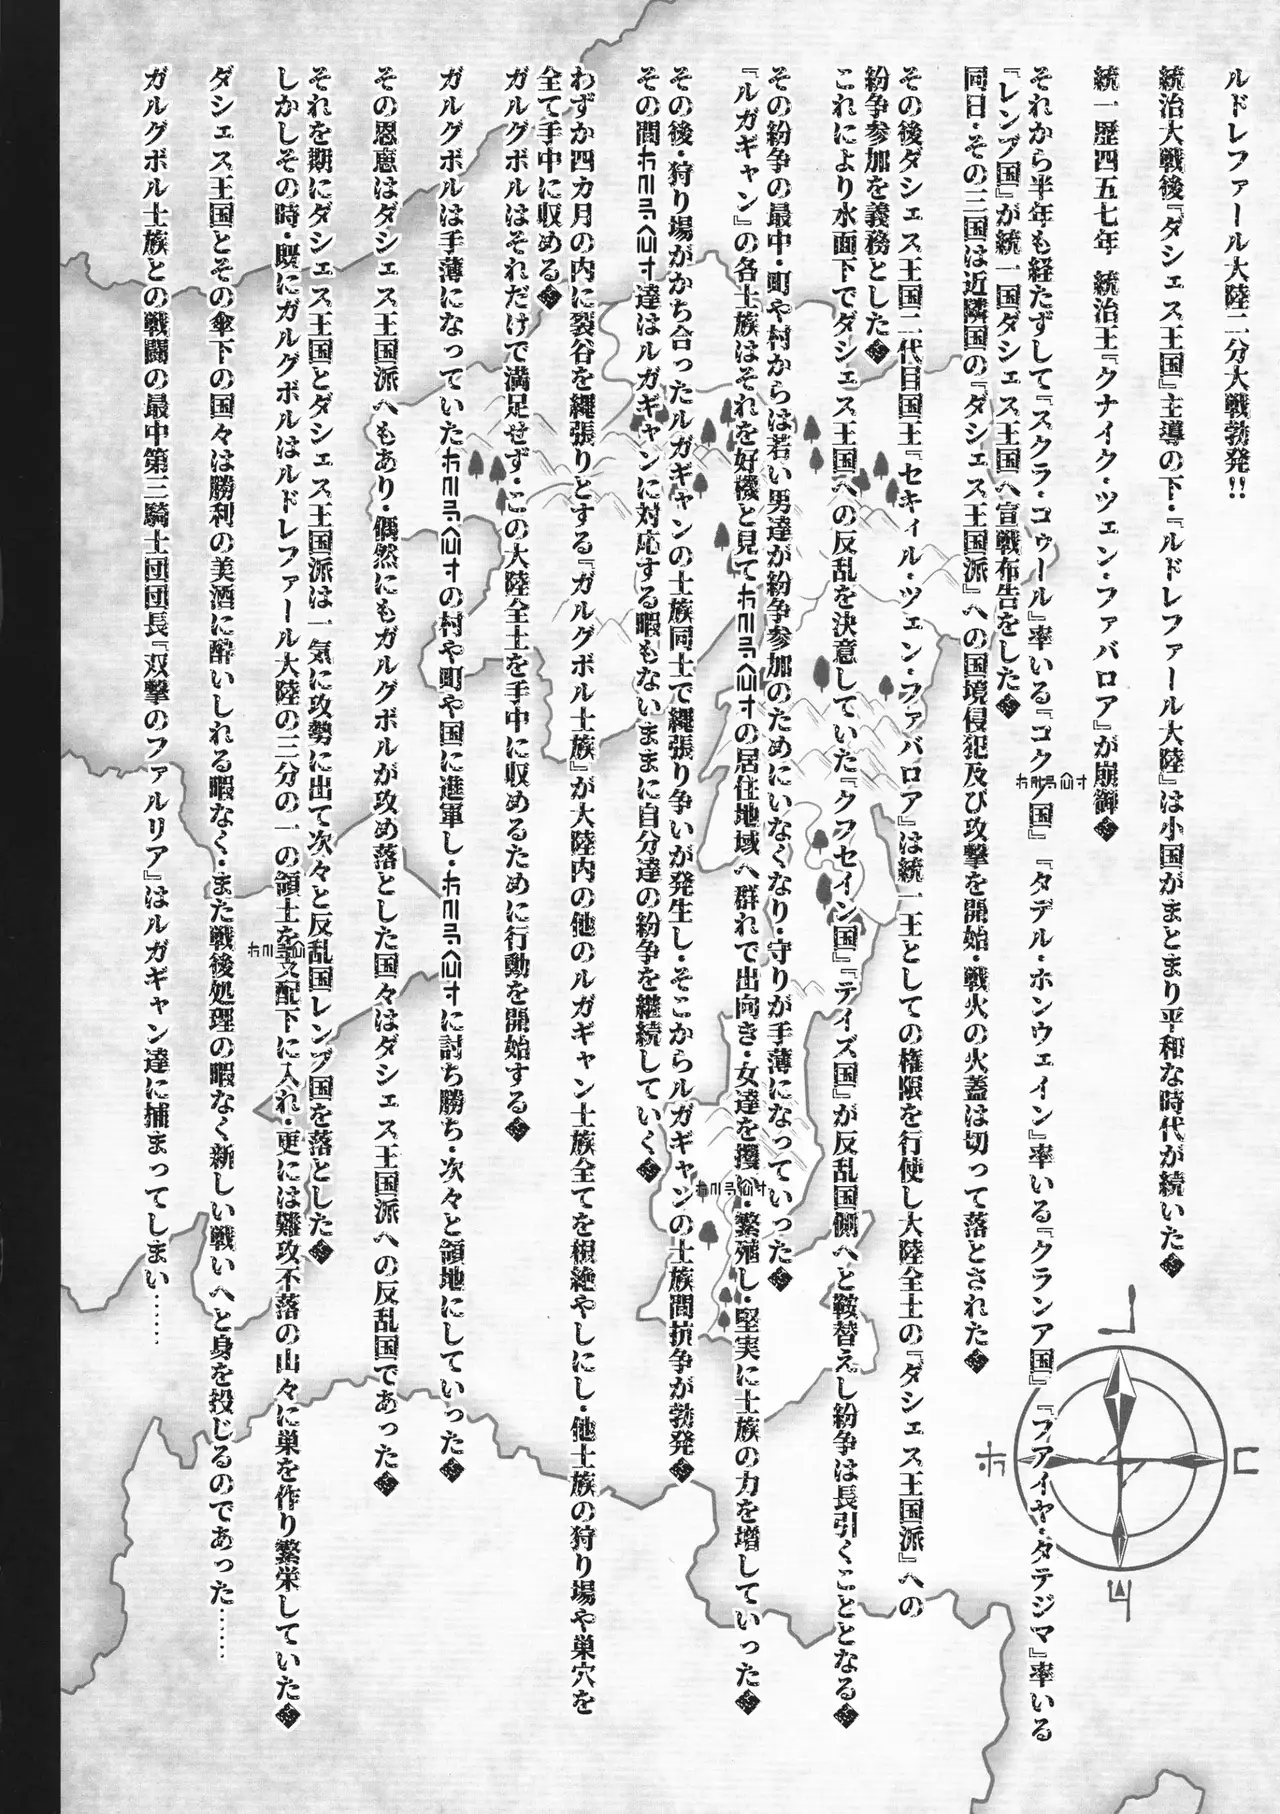 ルドレファール大陸二分大戦勃発!!
統治大戦後『ダシェス王国』主導の下・『ルドレファール大陸』は小国がまとまり平和な時代が続いた◆
統一歴四五七年 統治王『クナイク・ツェン・ファバロア』が崩御◆
それから半年も経たずして『スクラ・ゴゥール』率いる『ゴクア国』『タデル・ホンウェイン』率いる『クランア国』『フアイヤ・タテジマ』率いる
『レンブ国』が統一国ダシェス王国へ宣戦布告をした◆
同日・その三国は近隣国の『ダシェス王国派』への国境侵犯及び攻撃を開始・戦火の火蓋は切って落とされた◆
その後ダシェス王国二代目国王『セキィル・ツェン・ファバロア』は統一王としての権限を行使し大陸全土の『ダシェス王国派』への
紛争参加を義務とした◆
これにより水面下でダシェス王国への反乱を決意していた『クフセイン国』『テイズ国』が反乱国側へと鞍替えし紛争は長引くこととなる◆
その紛争の最中・町や村からは若い男達が紛争参加のためにいなくなり・守りが手薄になっていった◆
『ルガギャン』の各士族はそれを好機と見ての居住地域へ群れで出向き・女達を攫い・繁殖し・堅実に士族の力を増していった◆
その後・狩り場がかち合ったルガギャンの士族同士で縄張り争いが発生し・そこからルガギャンの士族間抗争が勃発◆
その間達はルガギャンに対応する暇もないままに自分達の紛争を継続していく◆
わずか四カ月の内に裂谷を縄張りとする『ガルグボル士族』が大陸内の他のルガギャン士族全てを根絶やしにし・他士族の狩り場や巣穴を
全て手中に収める◆
ガルグボルはそれだけで満足せず・この大陸全土を手中に収めるために行動を開始する◆
ガルグボルは手薄になっていたの村や町や国に進軍し・に討ち勝ち・次々と領地にしていった◆
その恩恵はダシェス王国派へもあり・偶然にもガルグボルが攻め落とした国々はダシェス王国派への反乱国であった◆
それを期にダシェス王国とダシェス王国派は一気に攻勢に出て次々と反乱国レンブ国を落とした◆
しかしその時・既にガルグボルはルドレファール大陸の三分の一の領土を支配下に入れ・更には難攻不落の山々に巣を作り繁栄していた◆
ダシェス王国とその傘下の国々は勝利の美酒に酔いしれる暇なく・また戦後処理の暇なく新しい戦いへと身を投じるのであった……
ガルグボル士族との戦闘の最中第三騎士団団長『双撃のファルリア』はルガギャン達に捕まってしまい……